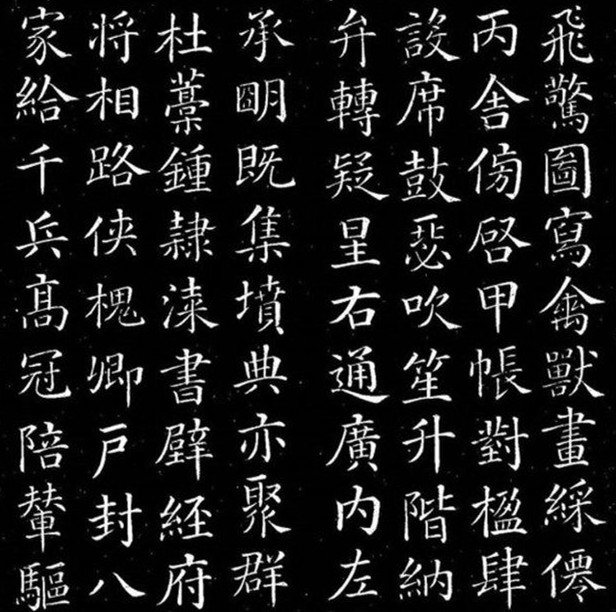 飛驚圖寫禽獸畫綵僊
丙舍傍啓甲帳對楹肆
設席鼓瑟吹笙升階納
弁轉疑星右通廣内左
承朙既集墳典亦聚群
杜藁鍾隸漆書壁経府
将相路俠槐卿戶封八
家給千兵髙冠陪輦驅